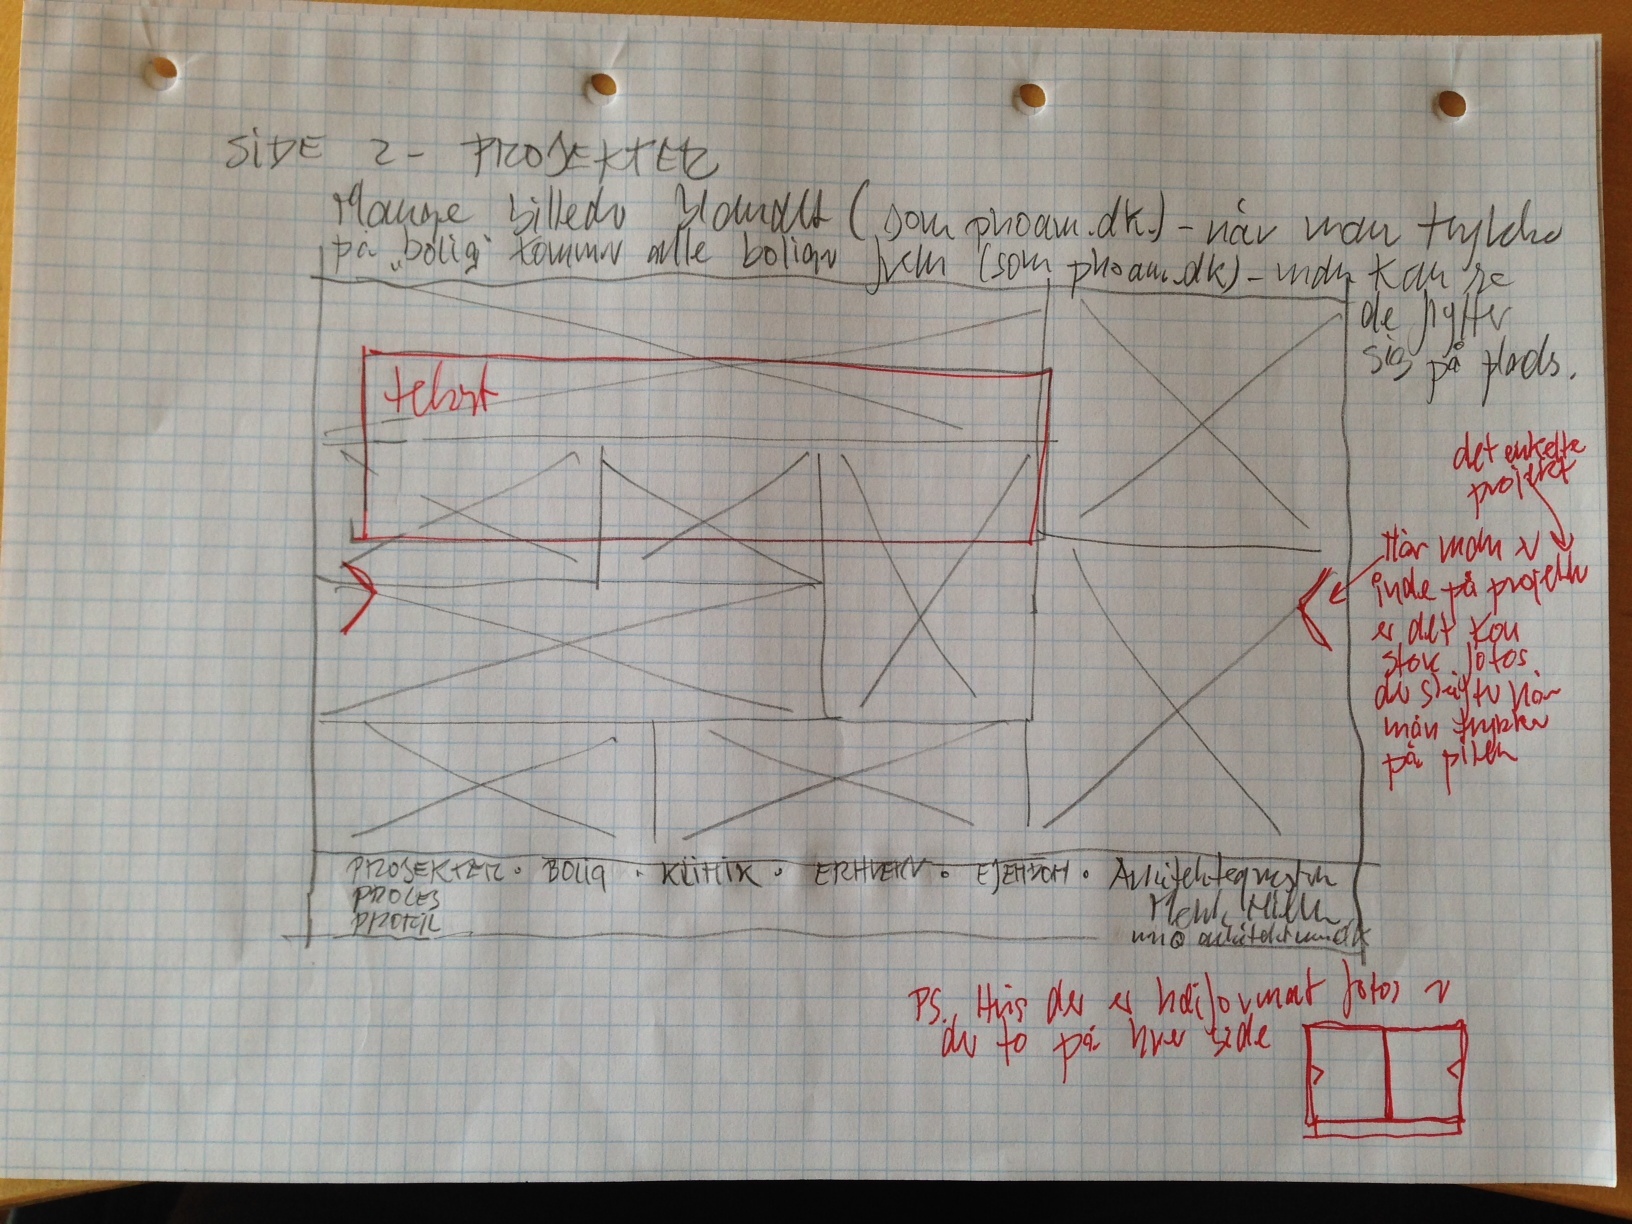 SIDE 2 - PROJEKTER
Mange billeder blandet (som phoam.dk) - når man trykker
på "bolig" kommer alle boliger frem (som phoam.dk) - man kan se
de flytter
sig på plads.
tekst
det enkelte
projekt
Når man er
inde på projekter
er det kun
store fotos
der skifter når
man trykker
på pilen
PROJEKTER · BOLIG · KLINIK · ERHVERV · EJENDOM · Arkitekttegnestuen
PROCES
PROFIL
PS. Hvis der er højformat fotos er
der to på hver side